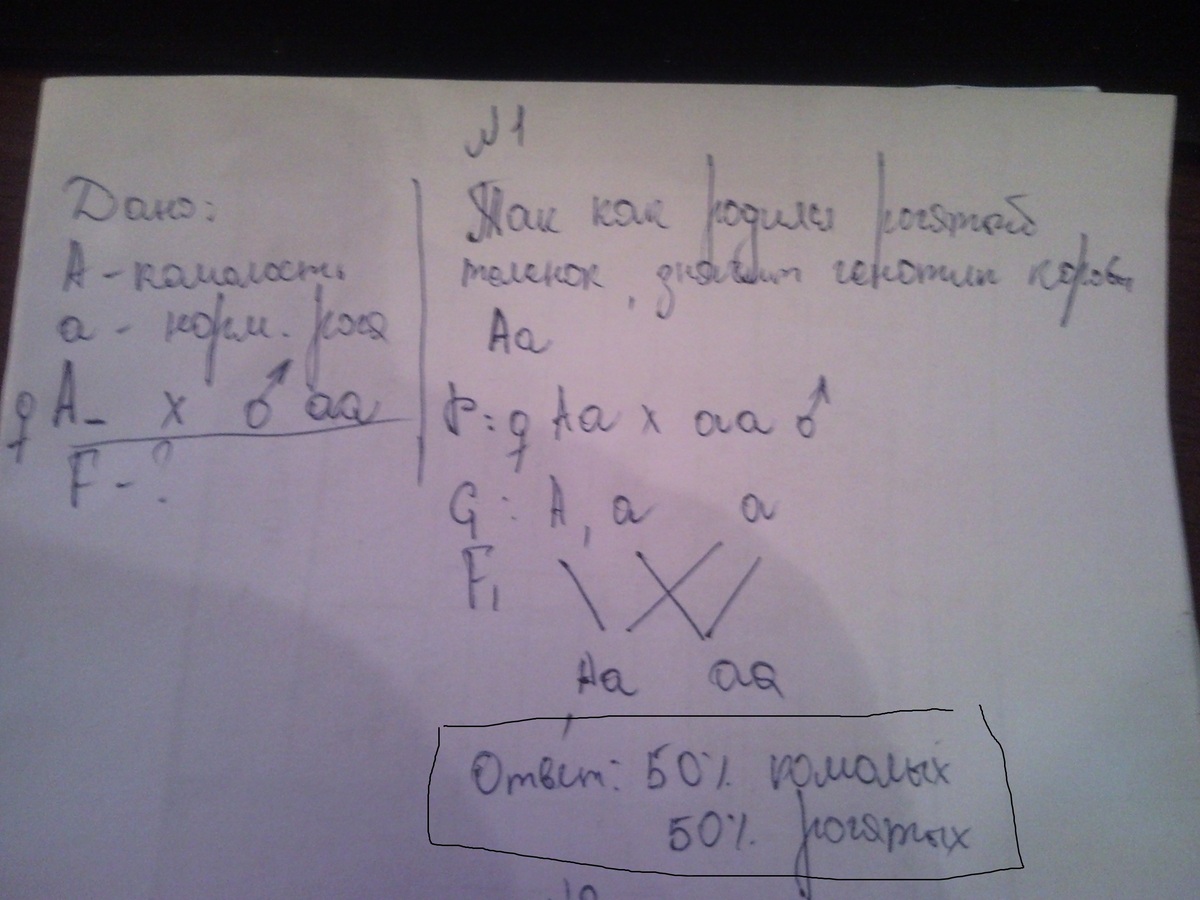 №1
Дано:
А - комолость
а - норм. рога
♀ А_ х ♂ аа
F - ?
Так как родился рогатый
теленок, значит генотип коровы
Аа
P: ♀ Аа х аа ♂
G: А, а а
F1
Аа аа
Ответ: 50% комолых
50% рогатых